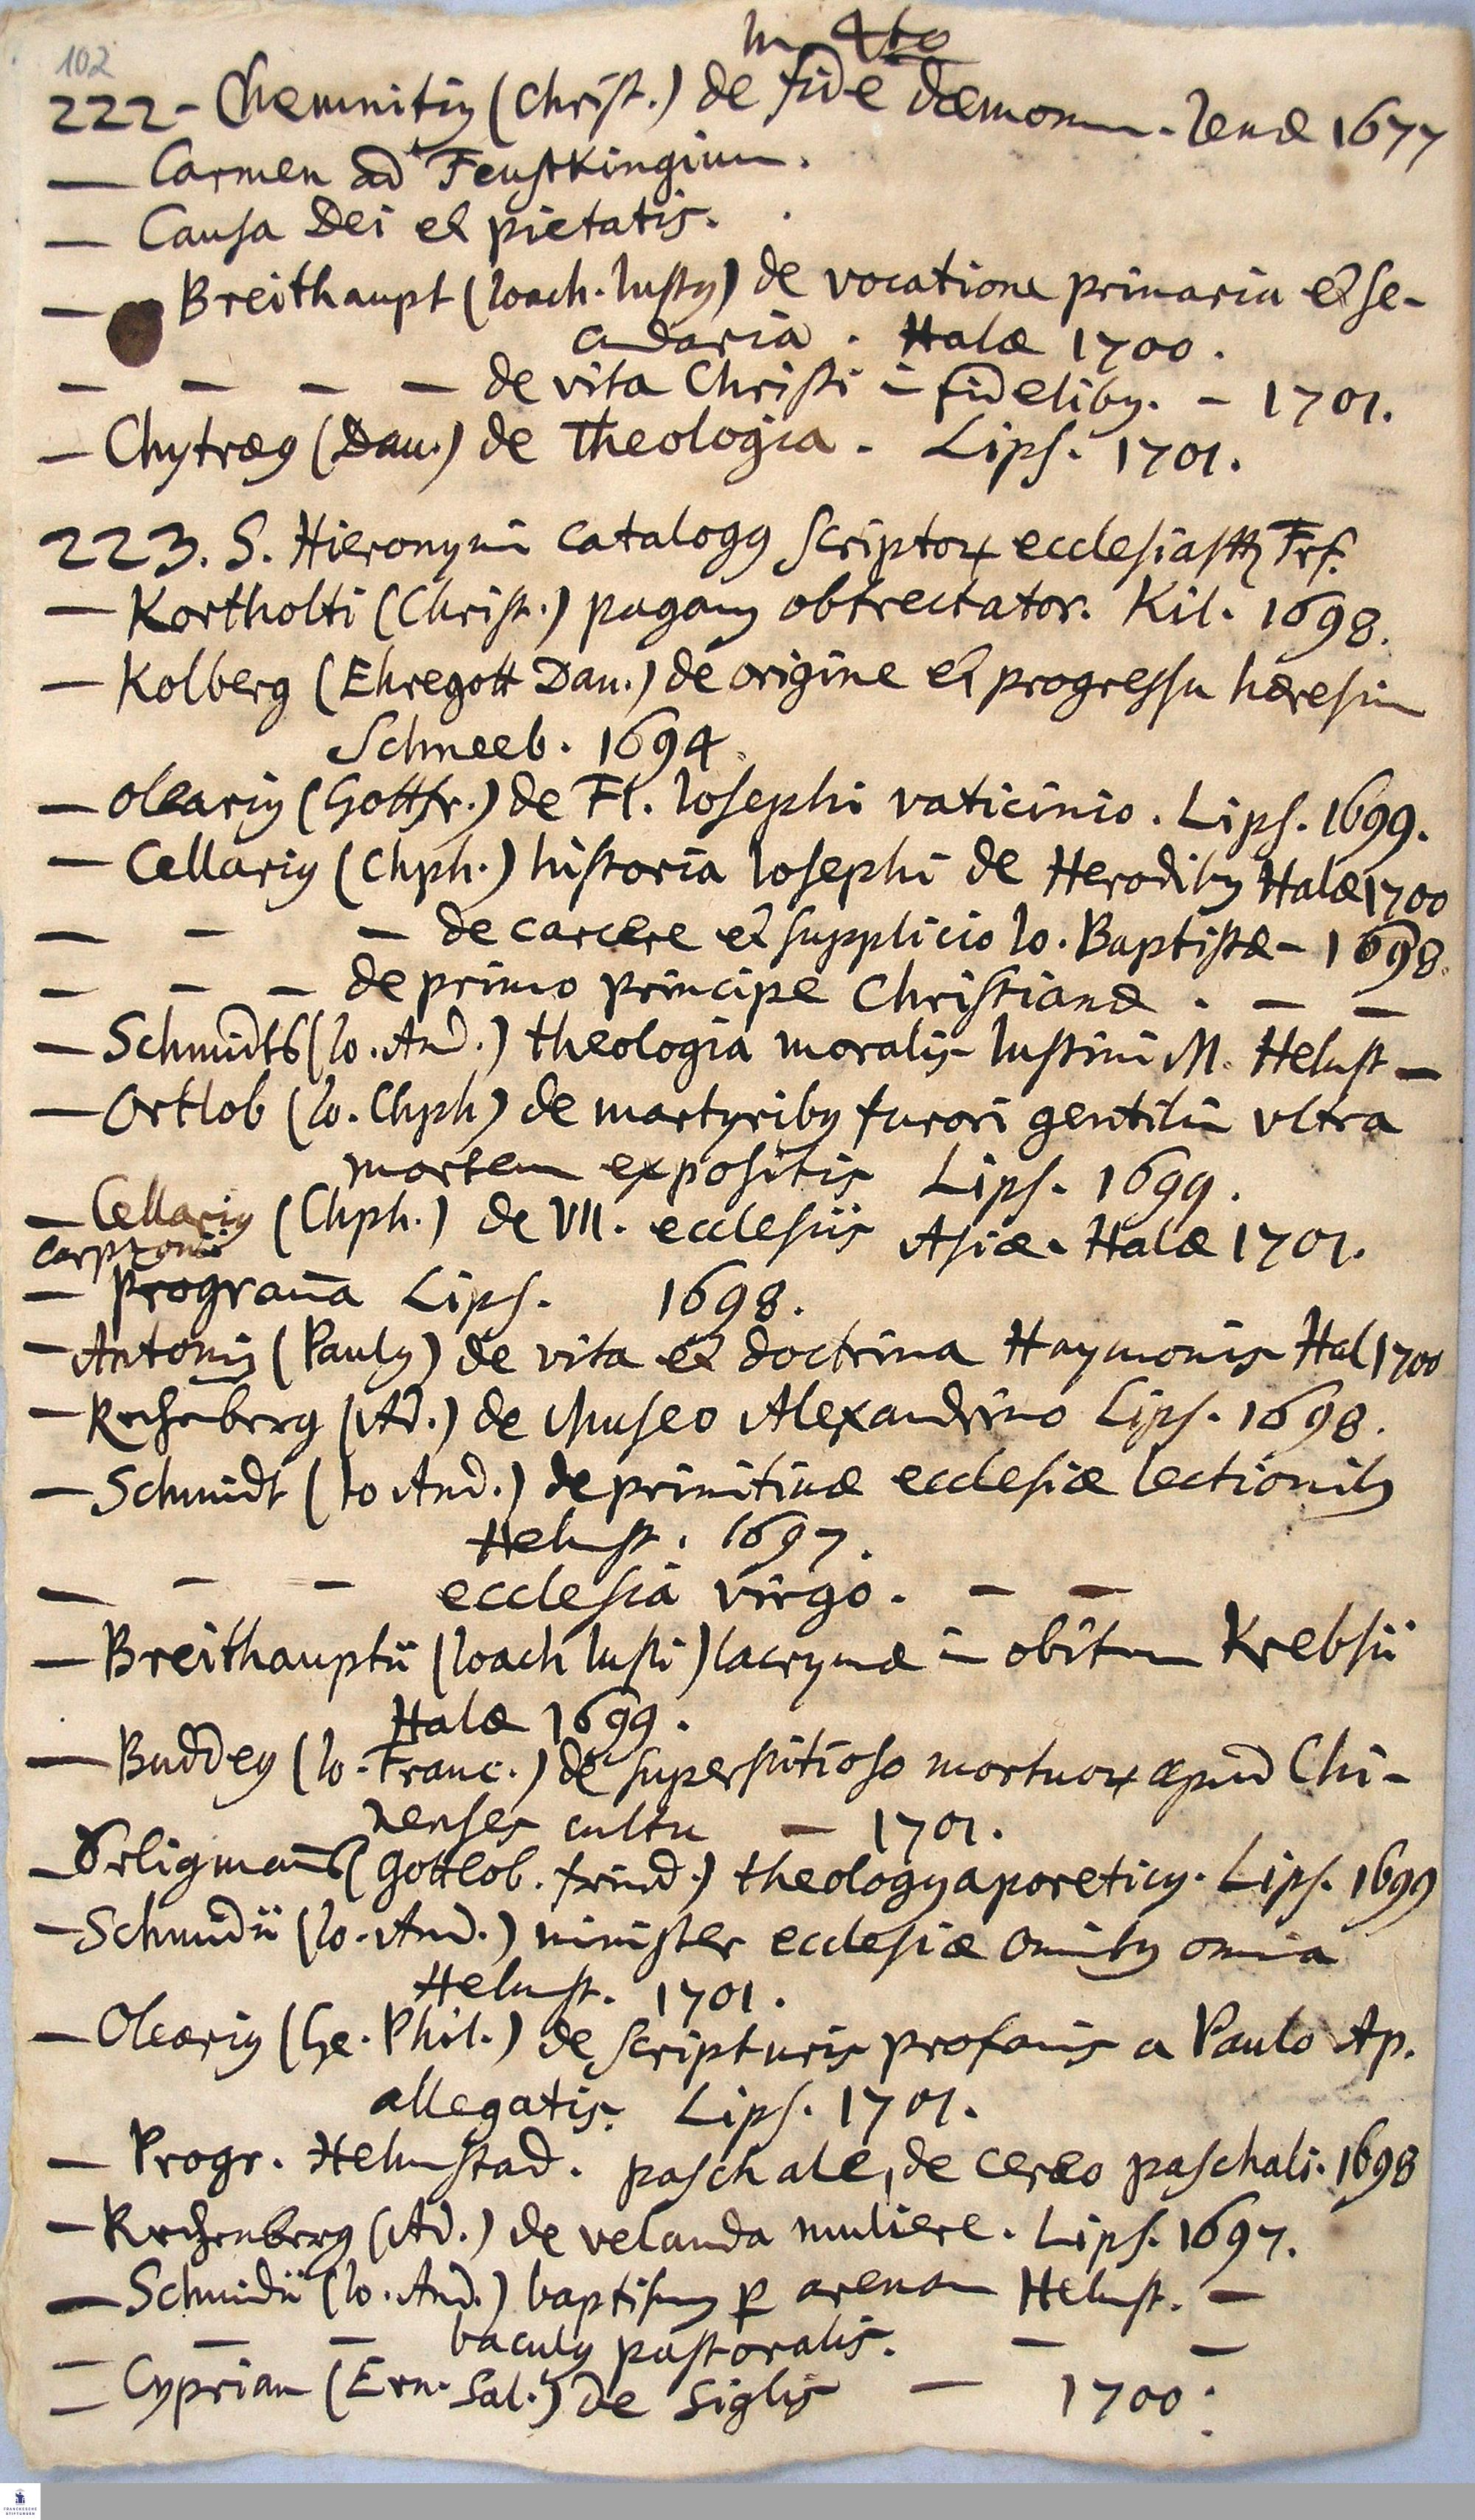 102
in 4to
222 - Chemnitiꝰ (Christ.) de fide dæmonum. Ienæ 1677
— Carmen ad Feustkingium.
— Causa Dei et pietatis.
— Breithaupt (Ioach. Iustꝰ) de vocatione primaria et se-
cundaria. Halæ 1700.
— — — — de vita Christi in fidelibꝰ. — 1701.
— Chytræꝰ (Dau.) de Theologia. Lips. 1701.
223. S. Hieronymi catalogꝰ scriptorꝝ ecclesiastt Frf.
— Kortholti (Christ.) paganꝰ obtrectator. Kil. 1698.
— Kolberg (Ehregott Dan.) de origine et progressu hæresiū
Schneeb. 1694.
— Oleariꝰ (Gottfr.) de Fl. Iosephi vaticinio. Lips. 1699.
— Cellariꝰ (Chph.) historia Iosephi de Herodibꝰ Halæ 1700
— — — de carcere et supplicio Io. Baptistæ — 1698.
— — — de primo principe Christiano. — —
— Schmidts (Io. And.) theologia moralis Iustini M. Helmst —
— Ortlob (Io. Chph) de martyribꝰ furori gentiliū vltra
mortem expositis Lips. 1699.
— Cellariꝰ (Chph.) de VII. ecclesiis Asiæ. Halæ 1701.
Carpzouii
— Programa Lips. 1698.
— Antoniꝰ (Paulꝰ) de vita et doctrina Haymonis Hal 1700
— Rechenberg (Ad.) de Museo Alexandrino Lips. 1698.
— Schmidt (Io And.) de primitiuæ ecclesiæ lectionibꝰ
Helmst. 1697.
— — — ecclesia virgo. — —
— Breithauptii (Ioach Iusti) lacrymæ in obitum Krebsii
Halæ 1699.
— Buddeꝰ (Io. Franc.) de superstitioso mortuorꝝ apud Chi-
nenses cultu — 1701.
— Seligmanns (Gottlob. frind.) theologꝰ aporeticꝰ. Lips. 1699
— Schmidii (Io. And.) minister ecclesiæ omibꝰ omia
Helmst. 1701.
— Oleariꝰ (Ge. Phil.) de scripturis profanis a Paulo Ap.
allegatis. Lips. 1701.
— Progr. Helmstad. paschale, de cereo paschali. 1698
— Rechenberg (Ad.) de velanda muliere. Lips. 1697.
— Schmidii (Io. And.) baptismꝰ ꝑ arenam Helmst. —
— — — baculꝰ pastoralis. — —
— Cyprian (Ern. Sal.) de siglis — 1700.
FRANCKESCHE
STIFTUNGEN